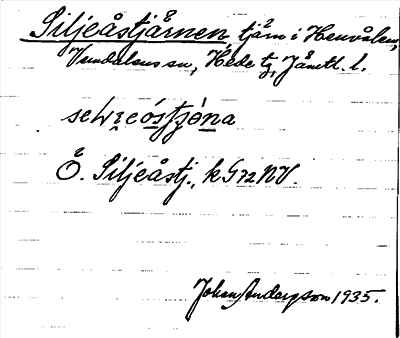 Siljeåstjärnen tjärn i Henvålen,
Vemdalens sn, Hede tg, Jämtl. l.
Ö. Siljeåstj., k G 72 NV.
Johan Anderson 1935.